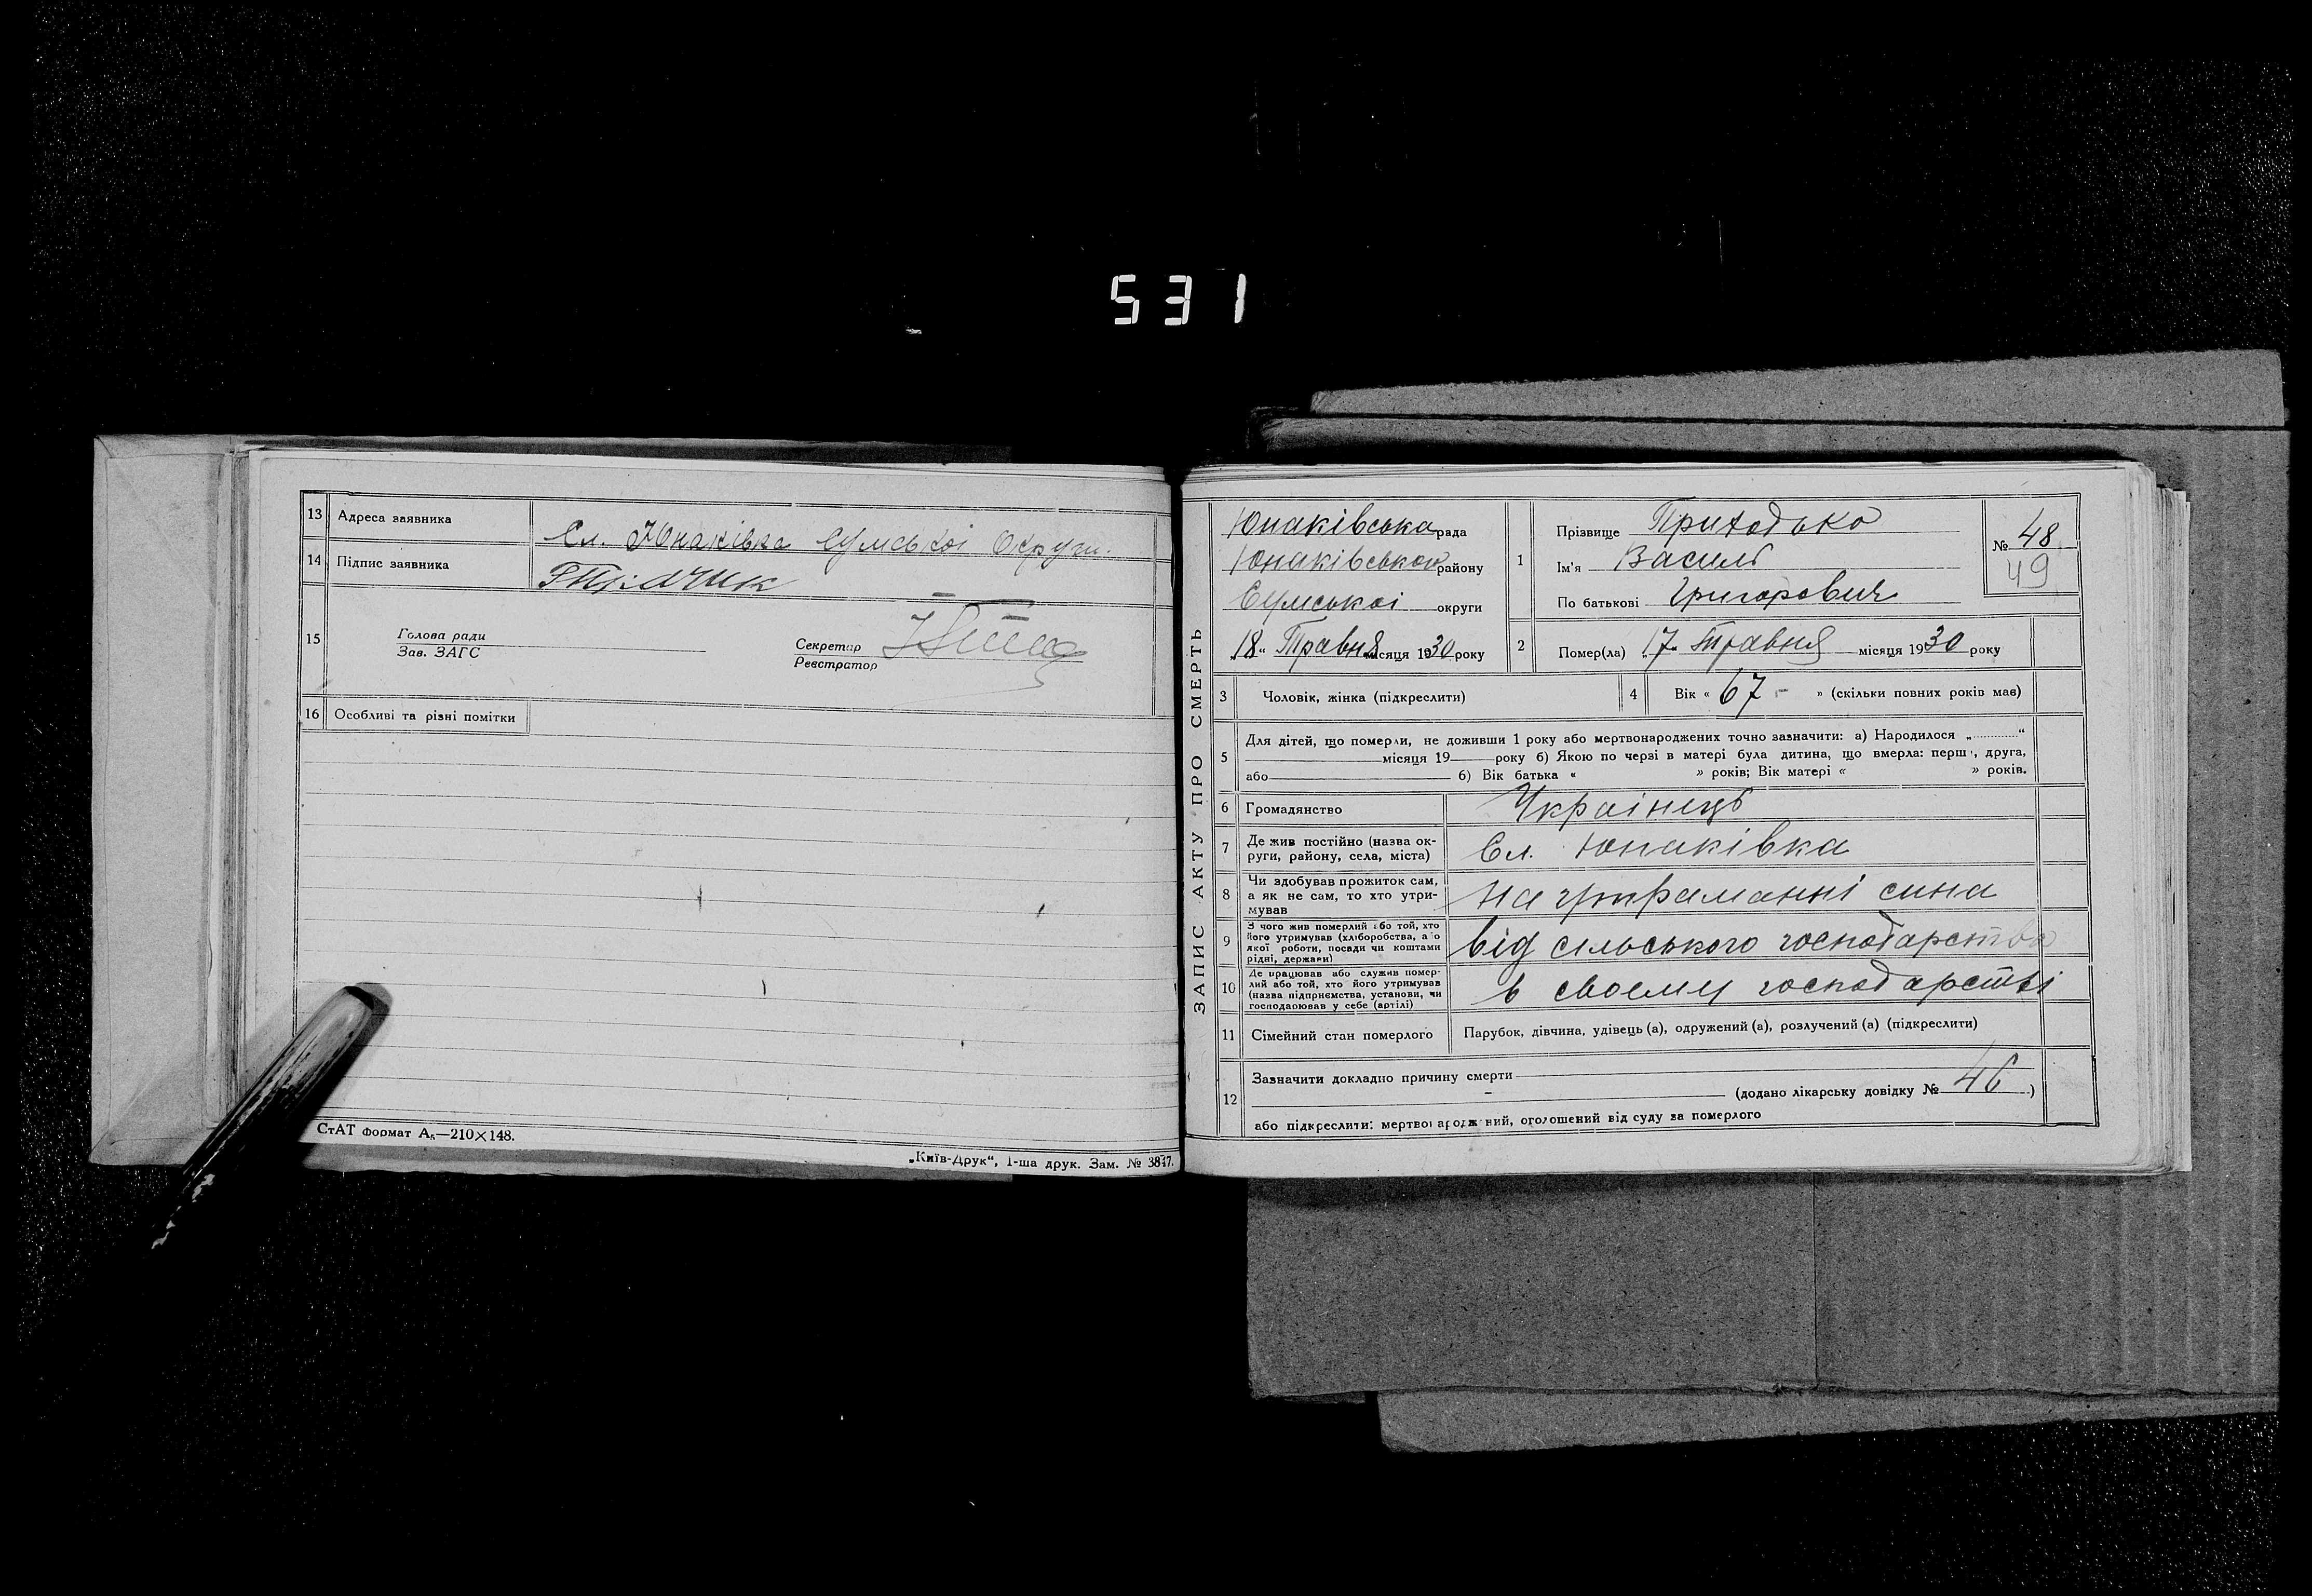 531
13 Адреса заявника Сл. Юнаківка Сумської Округи.
14 Підпис заявника
15 Голова ради
Зав. ЗАГС
Секретар
Реєстратор
16 Особливі та різні помітки
СтАТ формат А₅—210×148.
„Київ-Друк“, 1-ша друк. Зам. №
ЗАПИС АКТУ ПРО СМЕРТЬ
Юнаківська рада
Юнаківського району
Сумської округи
„18“ Травня місяця 1930 року
1 Прізвище Приходько
Ім'я Василь
По батькові Григорович
№ 48
49
2 Помер(ла) „17“ травня місяця 1930 року
3 Чоловік, жінка (підкреслити)
4 Вік « 67 - » (скільки повних років мав)
5 Для дітей, що померли, не доживши 1 року або мертвонароджених точно зазначити: а) Народилося „ “
місяця 19 року б) Якою по черзі в матері була дитина, що вмерла: перша, друга,
або б) Вік батька « » років; Вік матері « » років.
6 Громадянство Українець
7 Де жив постійно (назва ок-
руги, району, села, міста) Сл. Юнаківка
8 Чи здобував прожиток сам,
а як не сам, то хто утри-
мував на утриманні сина
9 З чого жив померлий або той, хто
його утримував (хліборобства, або
якої роботи, посади чи коштами
рідні, держави) від сільського господарства
10 Де працював або служив помер-
лий або той, хто його утримував
(назва підприємства, установи, чи
господарював у себе (артілі) в своєму господарстві
11 Сімейний стан померлого Парубок, дівчина, удівець (а), одружений (а), розлучений (а) (підкреслити)
12 Зазначити докладно причину смерти
(додано лікарську довідку № 46 )
або підкреслити: мертвонароджений, оголошений від суду за померлого